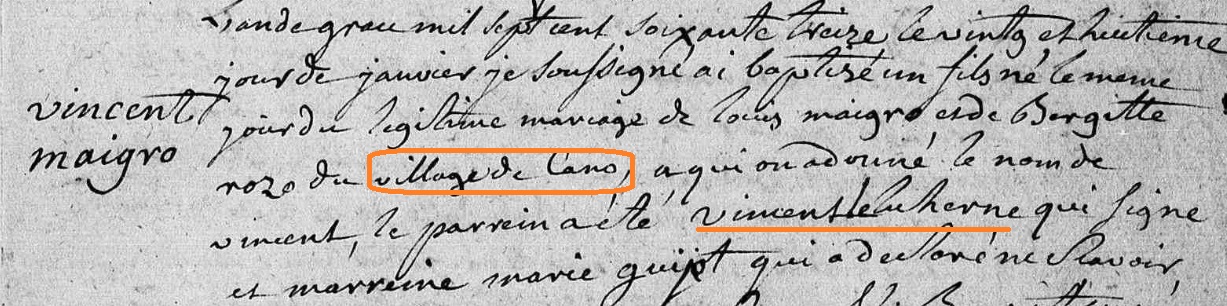 L'ande grau mil sept cent soixante treize le vintg et huitieme
vincent
maigro
jour de janvier je soussigné ai baptizé un fils né le meme
jour du legitime mariage de louis maigro et de Bergitte
rozo du village de Cano, a qui on a donné le nom de
vincent, le parrein a été vincent le luherne qui signe
et marreine marie guipt qui a declaré ne scavoir